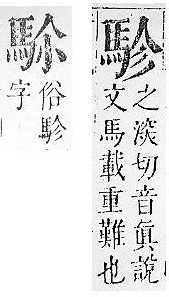 駗
之淡切音眞說
文馬載重難也
俗駗
字